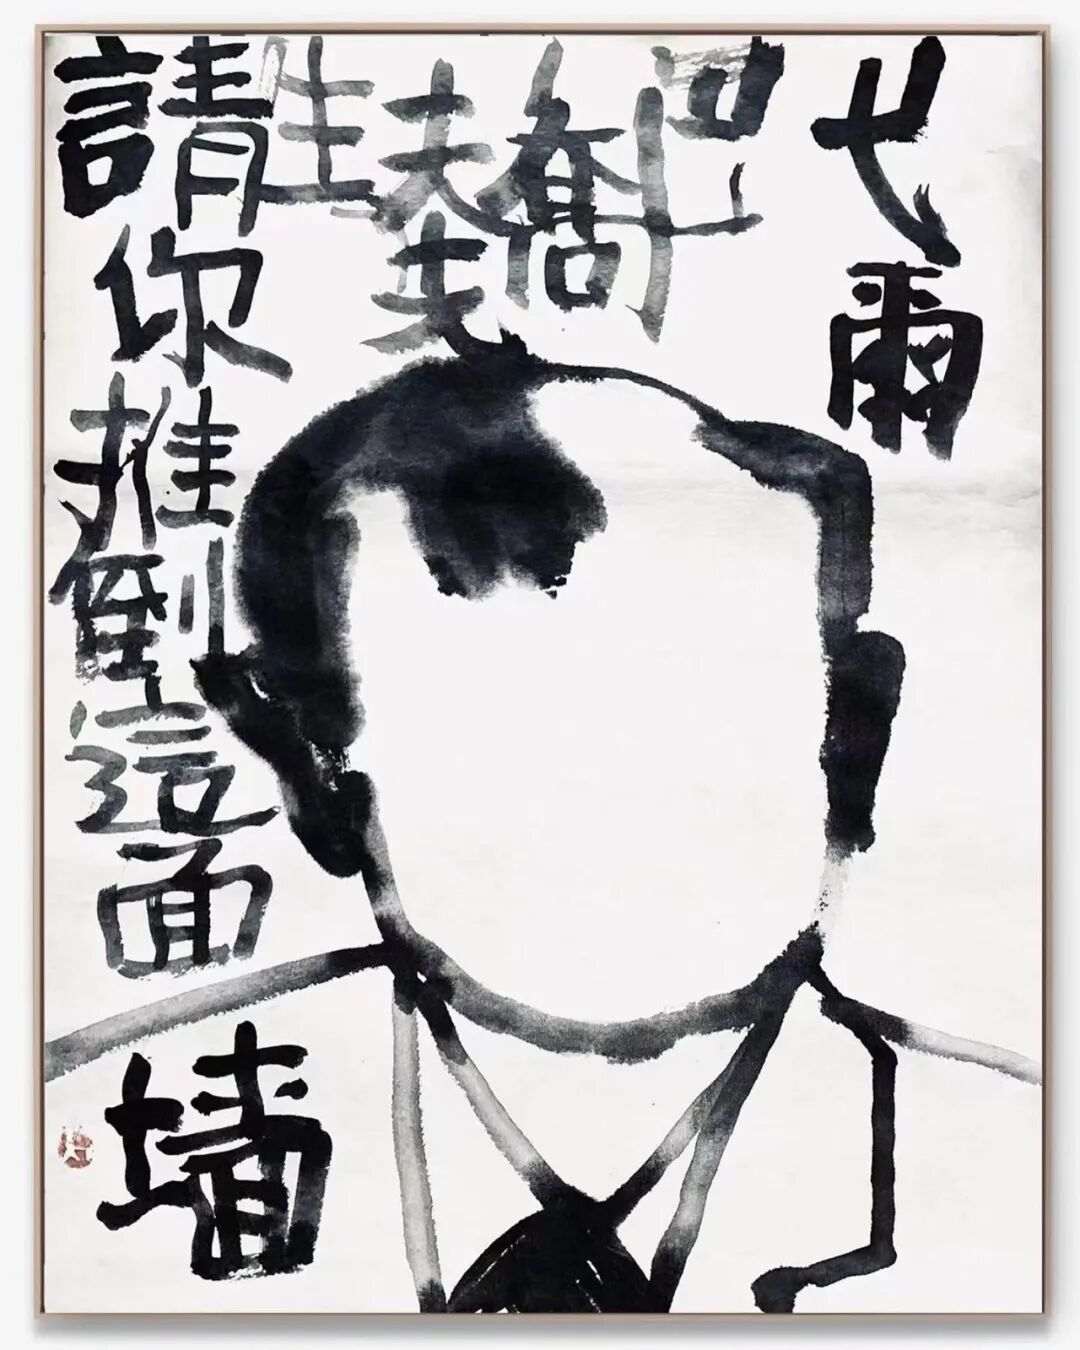 戈爾
巴
喬
夫先
生
請你推倒這面墻